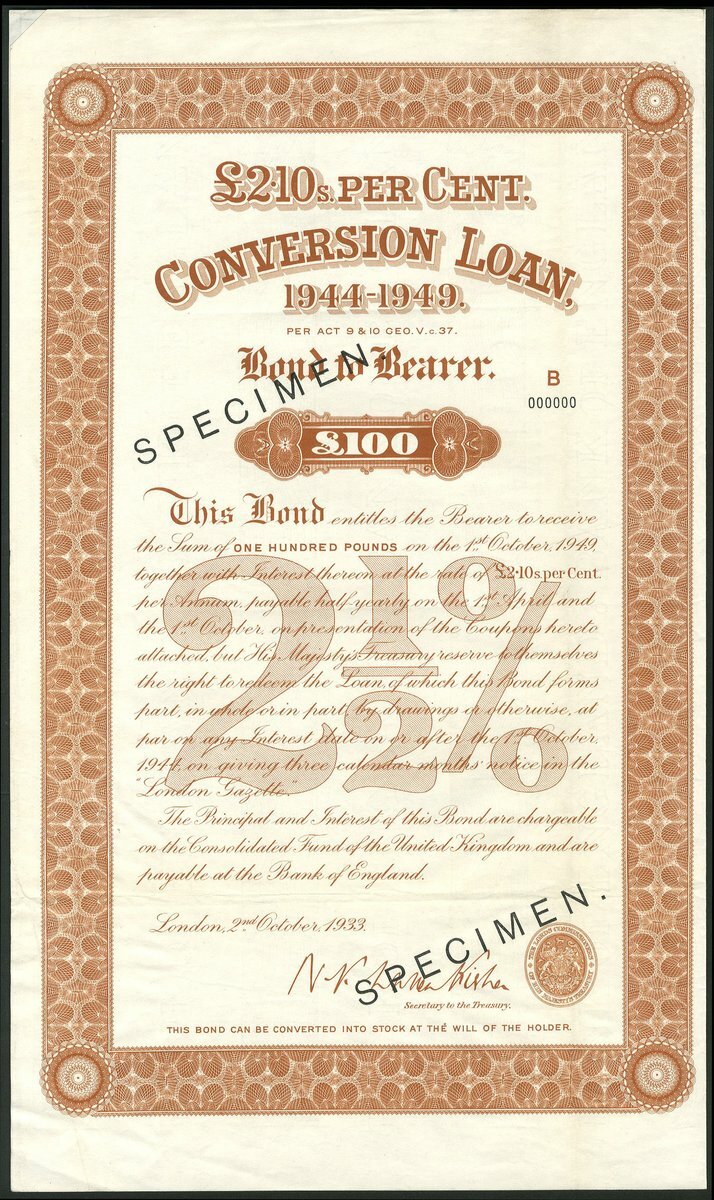 £2·10s. PER CENT.
CONVERSION LOAN,
1944-1949.
PER ACT 9 & 10 GEO. V. c. 37.
Bond to Bearer.
B
000000
SPECIMEN.
£100
This Bond entitles the Bearer to receive
the Sum of ONE HUNDRED POUNDS on the 1st October, 1949,
together with Interest thereon at the rate of £2·10s. per Cent.
per Annum, payable half-yearly on the 1st April and
the 1st October, on presentation of the Coupons hereto
attached, but His Majesty's Treasury reserve to themselves
the right to redeem the Loan, of which this Bond forms
part, in whole or in part, by drawings or otherwise, at
par on any Interest date on or after the 1st October,
1944, on giving three calendar months' notice in the
"London Gazette."
2½%
The Principal and Interest of this Bond are chargeable
on the Consolidated Fund of the United Kingdom and are
payable at the Bank of England.
London, 2nd October, 1933.
SPECIMEN.
THE LORDS COMMISSIONERS OF HIS MAJESTY'S TREASURY
Secretary to the Treasury.
THIS BOND CAN BE CONVERTED INTO STOCK AT THE WILL OF THE HOLDER.